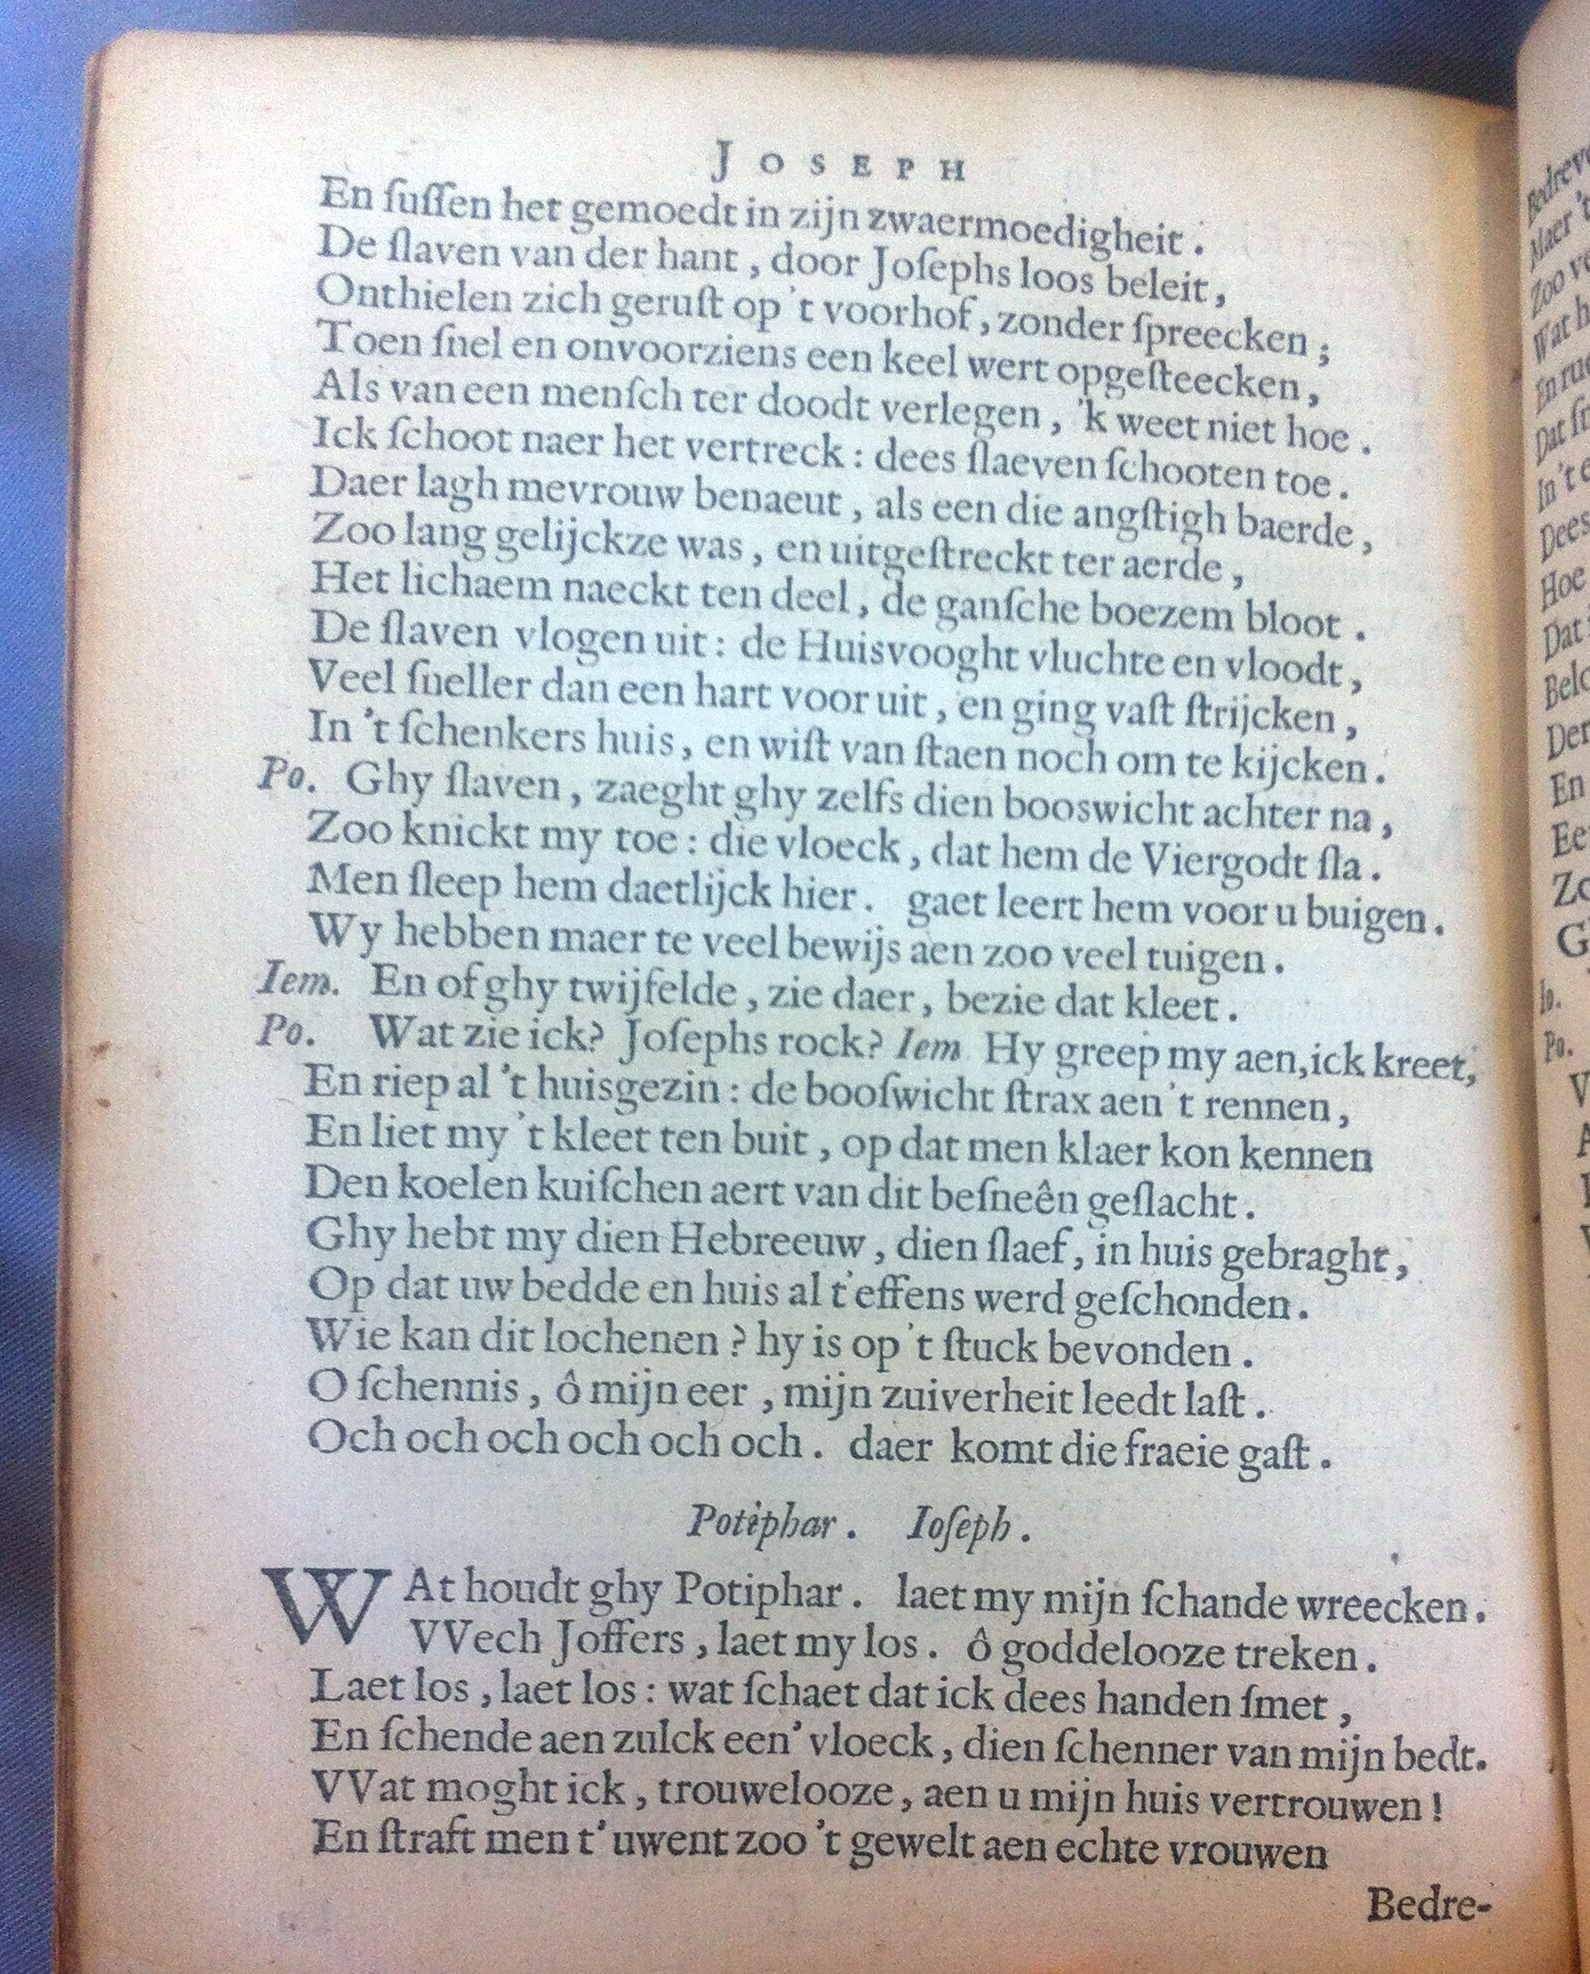 JOSEPH
En ſuſſen het gemoedt in zijn zwaermoedigheit.
De ſlaven van der hant, door Joſephs loos beleit,
Onthielen zich geruſt op 't voorhof, zonder ſpreecken;
Toen ſnel en onvoorziens een keel wert opgeſteecken,
Als van een menſch ter doodt verlegen, 'k weet niet hoe.
Ick ſchoot naer het vertreck: dees ſlaeven ſchooten toe.
Daer lagh mevrouw benaeut, als een die angſtigh baerde,
Zoo lang gelijckze was, en uitgeſtreckt ter aerde,
Het lichaem naeckt ten deel, de ganſche boezem bloot.
De ſlaven vlogen uit: de Huisvooght vluchte en vloodt,
Veel ſneller dan een hart vooruit, en ging vaſt ſtrijcken,
In 't ſchenkers huis, en wiſt van ſtaen noch om te kijcken.
Po. Ghy ſlaven, zaeght ghy zelfs dien booswicht achter na,
Zoo knickt my toe: die vloeck, dat hem de Viergodt ſla.
Men ſleep hem daetlijck hier. gaet leert hem voor u buigen.
Wy hebben maer te veel bewijs aen zoo veel tuigen.
Iem. En of ghy twijfelde, zie daer, bezie dat kleet.
Po. Wat zie ick? Joſephs rock? Iem Hy greep my aen, ick kreet,
En riep al 't huisgezin: de booſwicht ſtrax aen 't rennen,
En liet my 't kleet ten buit, op dat men klaer kon kennen
Den koelen kuiſchen aert van dit beſneên geſlacht.
Ghy hebt my dien Hebreeuw, dien ſlaef, in huis gebraght,
Op dat uw bedde en huis al t'effens werd geſchonden.
Wie kan dit lochenen? hy is op 't ſtuck bevonden.
O ſchennis, ô mijn eer, mijn zuiverheit leedt laſt.
Och och och och och och. daer komt die fraeie gaſt.
Potiphar. Ioſeph.
WAt houdt ghy Potiphar. laet my mijn ſchande wreecken.
VVech Joffers, laet my los. ô goddelooze treken.
Laet los, laet los: wat ſchaet dat ick dees handen ſmet,
En ſchende aen zulck een' vloeck, dien ſchenner van mijn bedt.
VVat moght ick, trouwelooze, aen u mijn huis vertrouwen!
En ſtraft men t'uwent zoo 't gewelt aen echte vrouwen
Bedre-